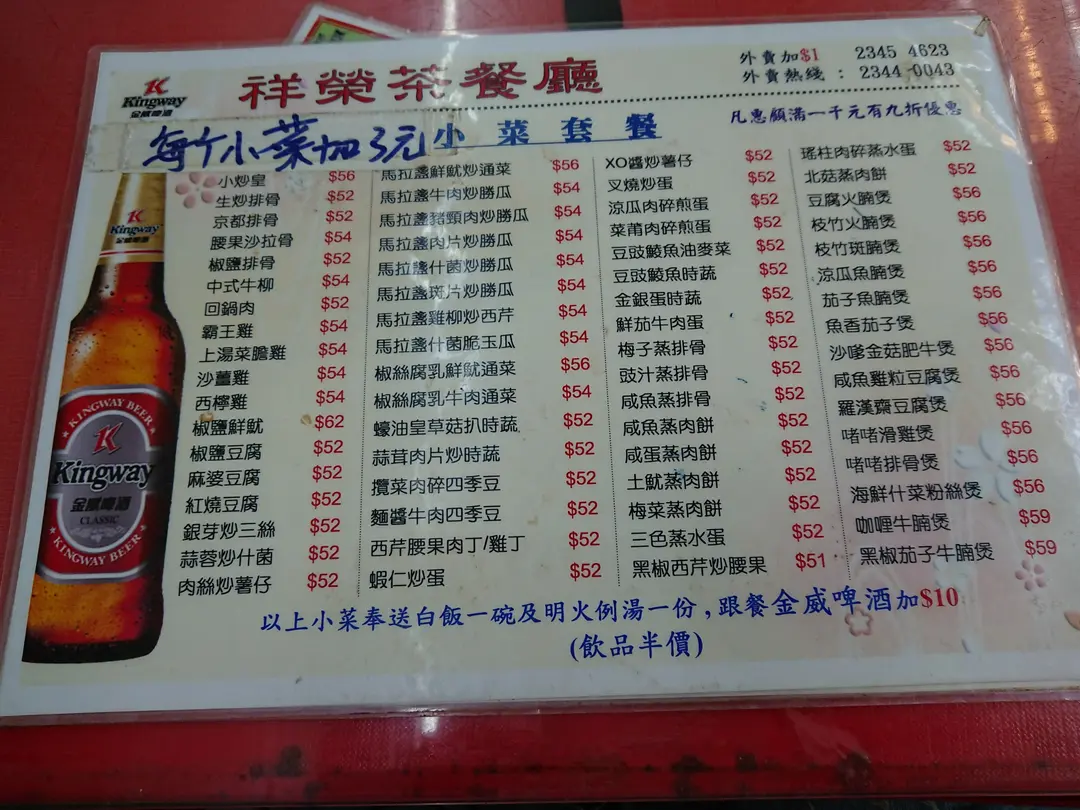 Kingway
金威啤酒
祥榮茶餐廳
外賣加$1 2345 4623
外賣熱綫：2344 0043
每个小菜加3元
小菜套餐
凡惠顧滿一千元有九折優惠
小炒皇 $56
生炒排骨 $52
京都排骨 $52
腰果沙拉骨 $54
椒鹽排骨 $52
中式牛柳 $54
回鍋肉 $52
霸王雞 $54
上湯菜膽雞 $54
沙薑雞 $54
西檸雞 $54
椒鹽鮮魷 $62
椒鹽豆腐 $52
麻婆豆腐 $52
紅燒豆腐 $52
銀芽炒三絲 $52
蒜蓉炒什菌 $52
肉絲炒薯仔 $52
馬拉盞鮮魷炒通菜 $56
馬拉盞牛肉炒勝瓜 $54
馬拉盞豬頸肉炒勝瓜 $54
馬拉盞肉片炒勝瓜 $54
馬拉盞什菌炒勝瓜 $54
馬拉盞斑片炒勝瓜 $54
馬拉盞雞柳炒西芹 $54
馬拉盞什菌脆玉瓜 $54
椒絲腐乳鮮魷通菜 $56
椒絲腐乳牛肉通菜 $54
蠔油皇草菇扒時蔬 $52
蒜茸肉片炒時蔬 $52
欖菜肉碎四季豆 $52
麵醬牛肉四季豆 $52
西芹腰果肉丁/雞丁 $52
蝦仁炒蛋 $52
XO醬炒薯仔 $52
叉燒炒蛋 $52
涼瓜肉碎煎蛋 $52
菜甫肉碎煎蛋 $52
豆豉鯪魚油麥菜 $52
豆豉鯪魚時蔬 $52
金銀蛋時蔬 $52
鮮茄牛肉蛋 $52
梅子蒸排骨 $52
豉汁蒸排骨 $52
咸魚蒸排骨 $52
咸魚蒸肉餅 $52
咸蛋蒸肉餅 $52
土魷蒸肉餅 $52
梅菜蒸肉餅 $52
三色蒸水蛋 $52
黑椒西芹炒腰果 $51
瑤柱肉碎蒸水蛋 $52
北菇蒸肉餅 $52
豆腐火腩煲 $56
枝竹火腩煲 $56
枝竹斑腩煲 $56
涼瓜魚腩煲 $56
茄子魚腩煲 $56
魚香茄子煲 $56
沙嗲金菇肥牛煲 $56
咸魚雞粒豆腐煲 $56
羅漢齋豆腐煲 $56
啫啫滑雞煲 $56
啫啫排骨煲 $56
海鮮什菜粉絲煲 $56
咖喱牛腩煲 $59
黑椒茄子牛腩煲 $59
K
Kingway
金威啤酒
KINGWAY BEER
Kingway
金威啤酒
CLASSIC
KINGWAY BEER
以上小菜奉送白飯一碗及明火例湯一份，跟餐金威啤酒加$10
(飲品半價)